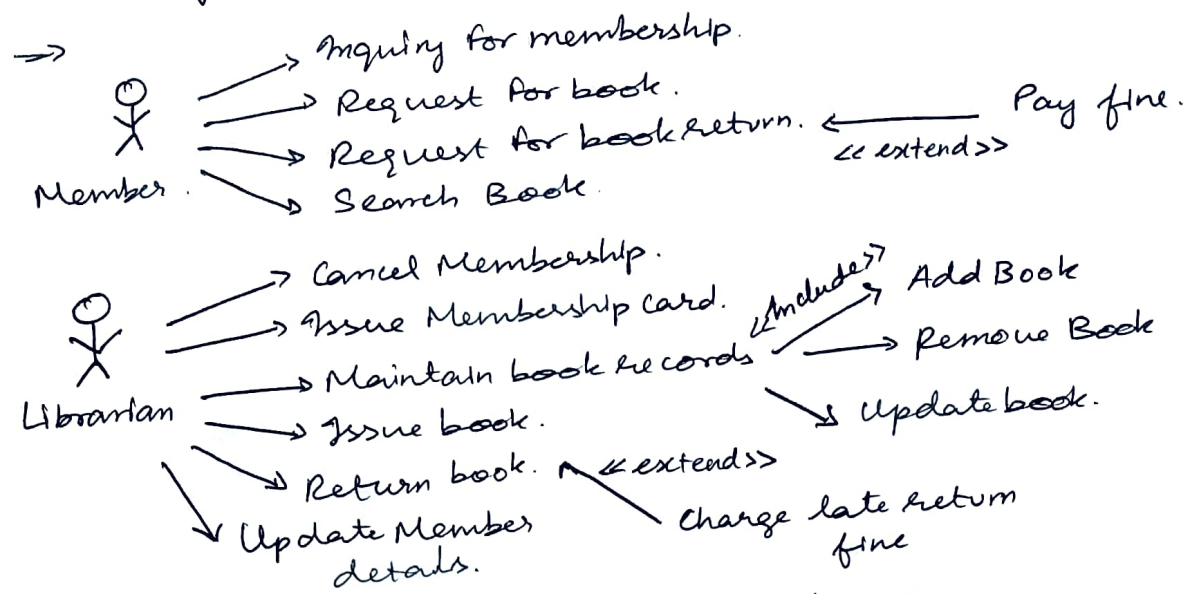 Inquiry for membership.
Request for book.
Request for book return.
<<extend>>
Pay fine.
Search Book.
Member.
Cancel Membership.
Issue Membership card.
Maintain book records
<<Include>>
Add Book
Remove Book
Update book.
Librarian
Issue book.
Return book.
<<extend>>
Charge late return
fine
Update Member
details.